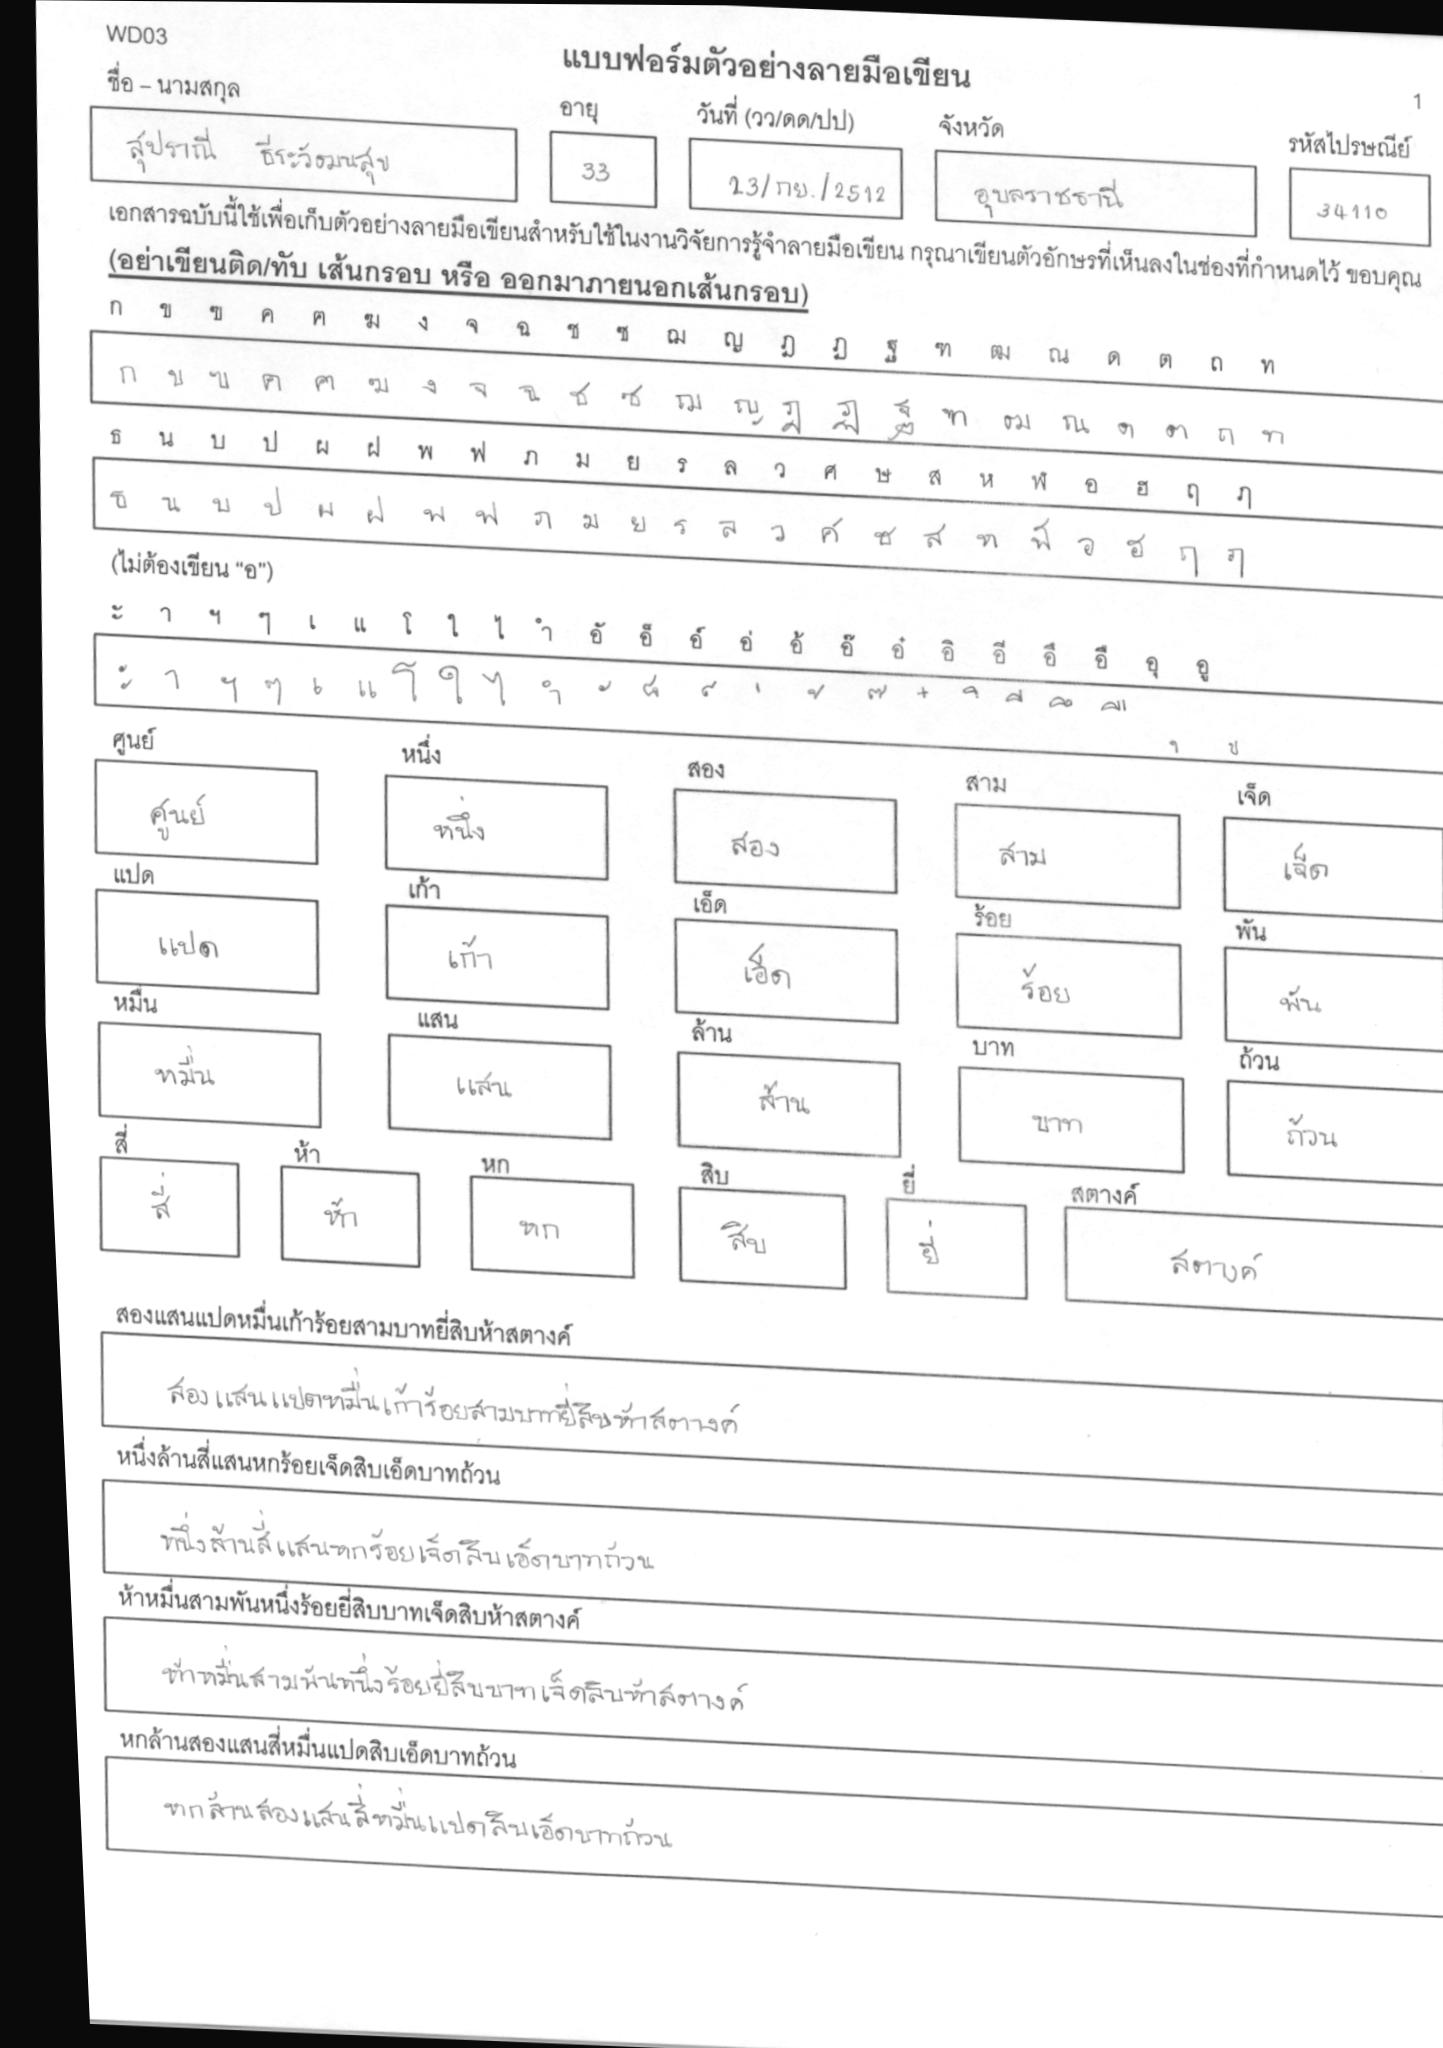 WD03
แบบฟอร์มตัวอย่างลายมือเขียน
1
ชื่อ – นามสกุล อายุ วันที่ (วว/ดด/ปป) จังหวัด รหัสไปรษณีย์
สุปราณี 33 23/กย./2512 อุบลราชธานี 34110
เอกสารฉบับนี้ใช้เพื่อเก็บตัวอย่างลายมือเขียนสำหรับใช้ในงานวิจัยการรู้จำลายมือเขียน กรุณาเขียนตัวอักษรที่เห็นลงในช่องที่กำหนดไว้ ขอบคุณ
(อย่าเขียนติด/ทับ เส้นกรอบ หรือ ออกมาภายนอกเส้นกรอบ)
ก ข ฃ ค ฅ ฆ ง จ ฉ ช ซ ฌ ญ ฎ ฏ ฐ ฑ ฒ ณ ด ต ถ ท
ก ข ฃ ค ฅ ฆ ง จ ฉ ช ซ ฌ ญ ฎ ฏ ฐ ฑ ฒ ณ ด ต ถ ท
ธ น บ ป ผ ฝ พ ฟ ภ ม ย ร ล ว ศ ษ ส ห ฬ อ ฮ ฤ ฦ
ธ น บ ป ผ ฝ พ ฟ ภ ม ย ร ล ว ศ ษ ส ห ฬ อ ฮ ฤ ฦ
(ไม่ต้องเขียน “อ”)
ะ า ฯ ๆ เ แ โ ใ ไ ำ อั อ็ อ์ อ่ อ้ อ๊ อ๋ อิ อี อึ อื อุ อู
ะ า ฯ ๆ เ แ โ ใ ไ ำ ั ็ ์ ่ ้ ๊ ๋ ิ ี ึ ื ุ ู
ศูนย์ หนึ่ง สอง สาม เจ็ด
ศูนย์ หนึ่ง สอง สาม เจ็ด
แปด เก้า เอ็ด ร้อย พัน
แปด เก้า เอ็ด ร้อย พัน
หมื่น แสน ล้าน บาท ถ้วน
หมื่น แสน ล้าน บาท ถ้วน
สี่ ห้า หก สิบ ยี่ สตางค์
สี่ ห้า หก สิบ ยี่ สตางค์
สองแสนแปดหมื่นเก้าร้อยสามบาทยี่สิบห้าสตางค์
สองแสนแปดหมื่นเก้าร้อยสามบาทยี่สิบห้าสตางค์
หนึ่งล้านสี่แสนหกร้อยเจ็ดสิบเอ็ดบาทถ้วน
หนึ่งล้านสี่แสนหกร้อยเจ็ดสิบเอ็ดบาทถ้วน
ห้าหมื่นสามพันหนึ่งร้อยยี่สิบบาทเจ็ดสิบห้าสตางค์
ห้าหมื่นสามพันหนึ่งร้อยยี่สิบบาทเจ็ดสิบห้าสตางค์
หกล้านสองแสนสี่หมื่นแปดสิบเอ็ดบาทถ้วน
หกล้านสองแสนสี่หมื่นแปดสิบเอ็ดบาทถ้วน